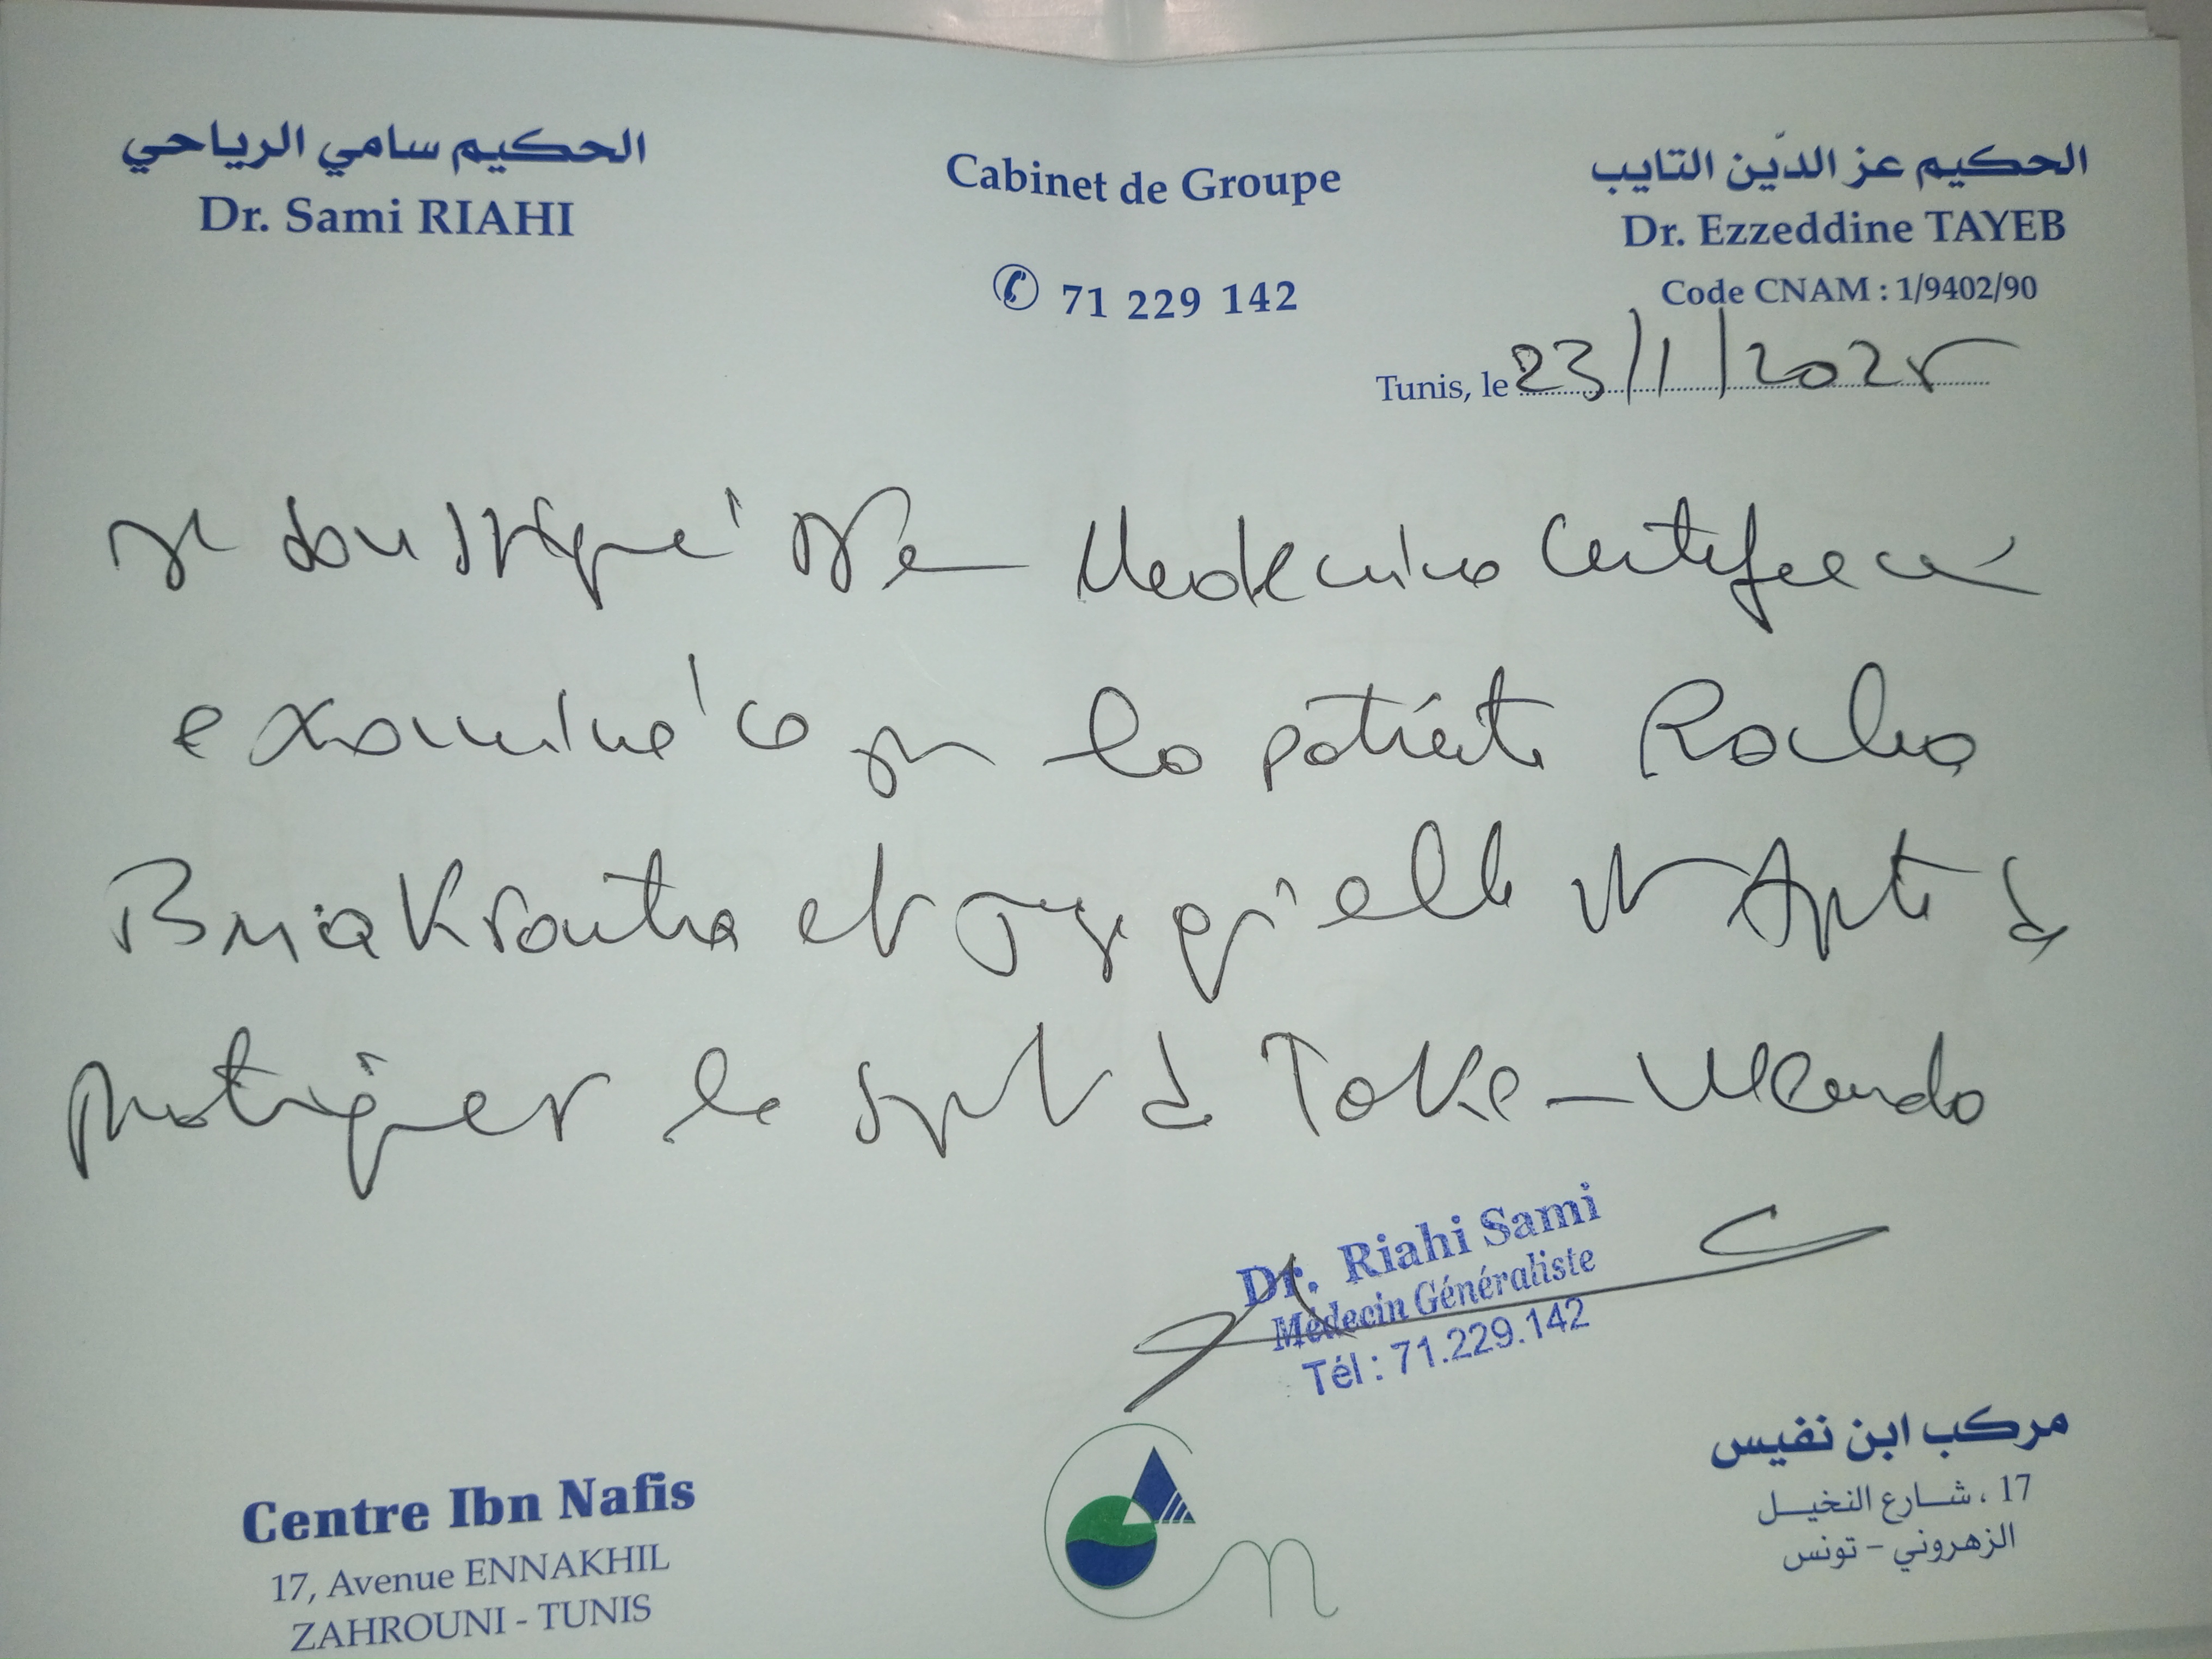 الحكيم سامي الرياحي
Dr. Sami RIAHI
Cabinet de Groupe
71 229 142
الحكيم عز الدّين التايب
Dr. Ezzeddine TAYEB
Code CNAM : 1/9402/90
Tunis, le 23/1/2025
Je soussigné Dr en Medecine Certifie avoir
examiné ce jour la patiente
et que qu'elle est Apte à
pratiquer le sport de Toke-Wendo
Dr. Riahi Sami
Médecin Généraliste
Tél : 71.229.142
Centre Ibn Nafis
17, Avenue ENNAKHIL
ZAHROUNI - TUNIS
مركب ابن نفيس
17 ، شارع النخيل
الزهروني - تونس